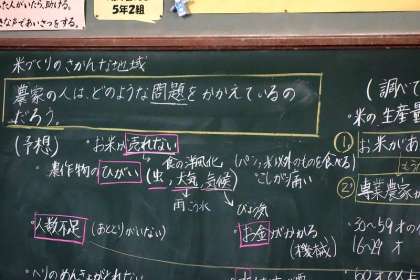 た人がいたら、助ける。
きな声であいさつをする。
5年2組
米づくりのさかんな地域
農家の人は、どのような問題をかかえているの
だろう。
(予想)
・お米が売れない
食の洋風化 (パン、米以外のものを食べる)
・農作物のひがい(虫、天気、気候)
・こしが痛い
雨 こう水
びょう気
・人数不足 (あとつりがいない)
・お金がかかる
(機械)
(調べて
・米の生産量
① お米があ
② 専業農家が
30〜59才の
16〜29才
60才